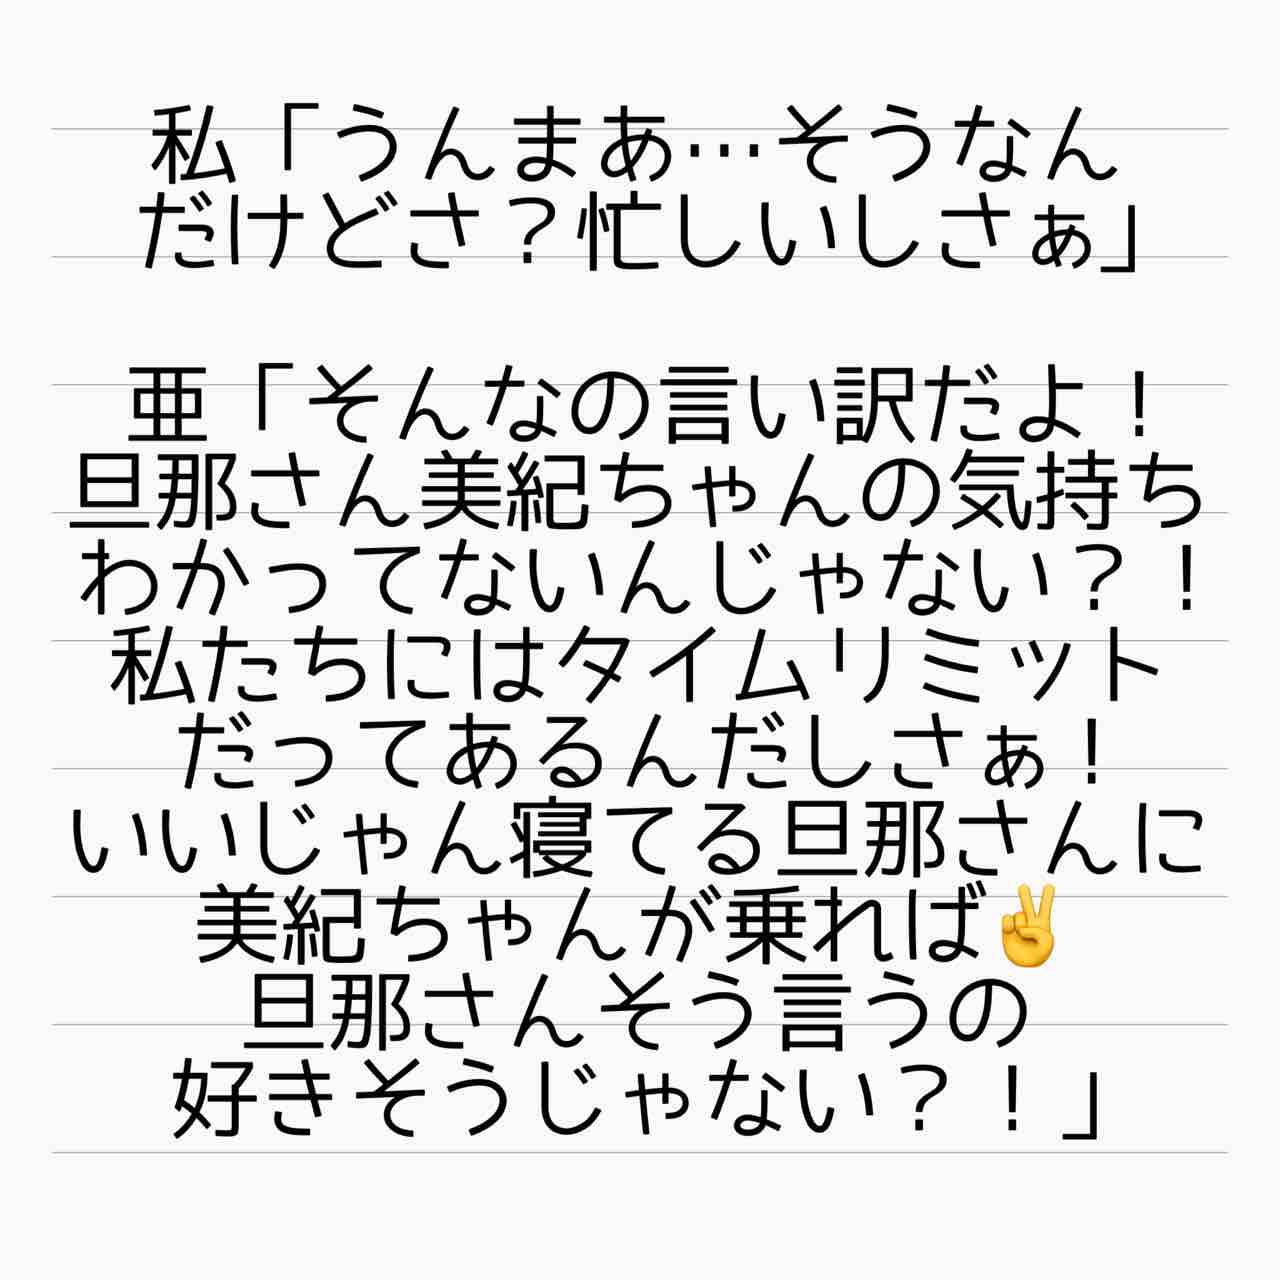 私「うんまあ…そうなん
だけどさ？忙しいしさぁ」
亜「そんなの言い訳だよ！
旦那さん美紀ちゃんの気持ち
わかってないんじゃない？！
私たちにはタイムリミット
だってあるんだしさぁ！
いいじゃん寝てる旦那さんに
美紀ちゃんが乗れば✌
旦那さんそう言うの
好きそうじゃない？！」